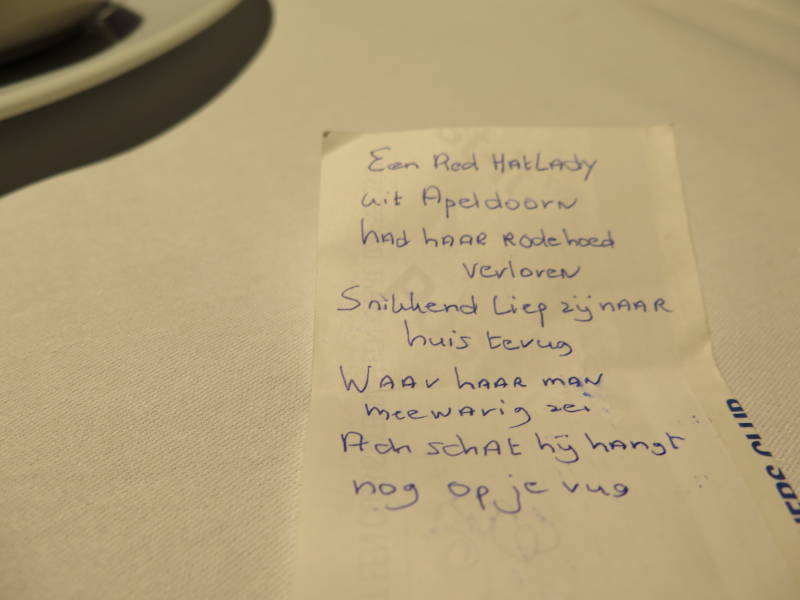 Een Red HatLady
uit Apeldoorn
had haar rodehoed
verloren
Snikkend liep zij naar
huis terug
Waar haar man
meewarig zei
Ach schat hij hangt
nog op je rug